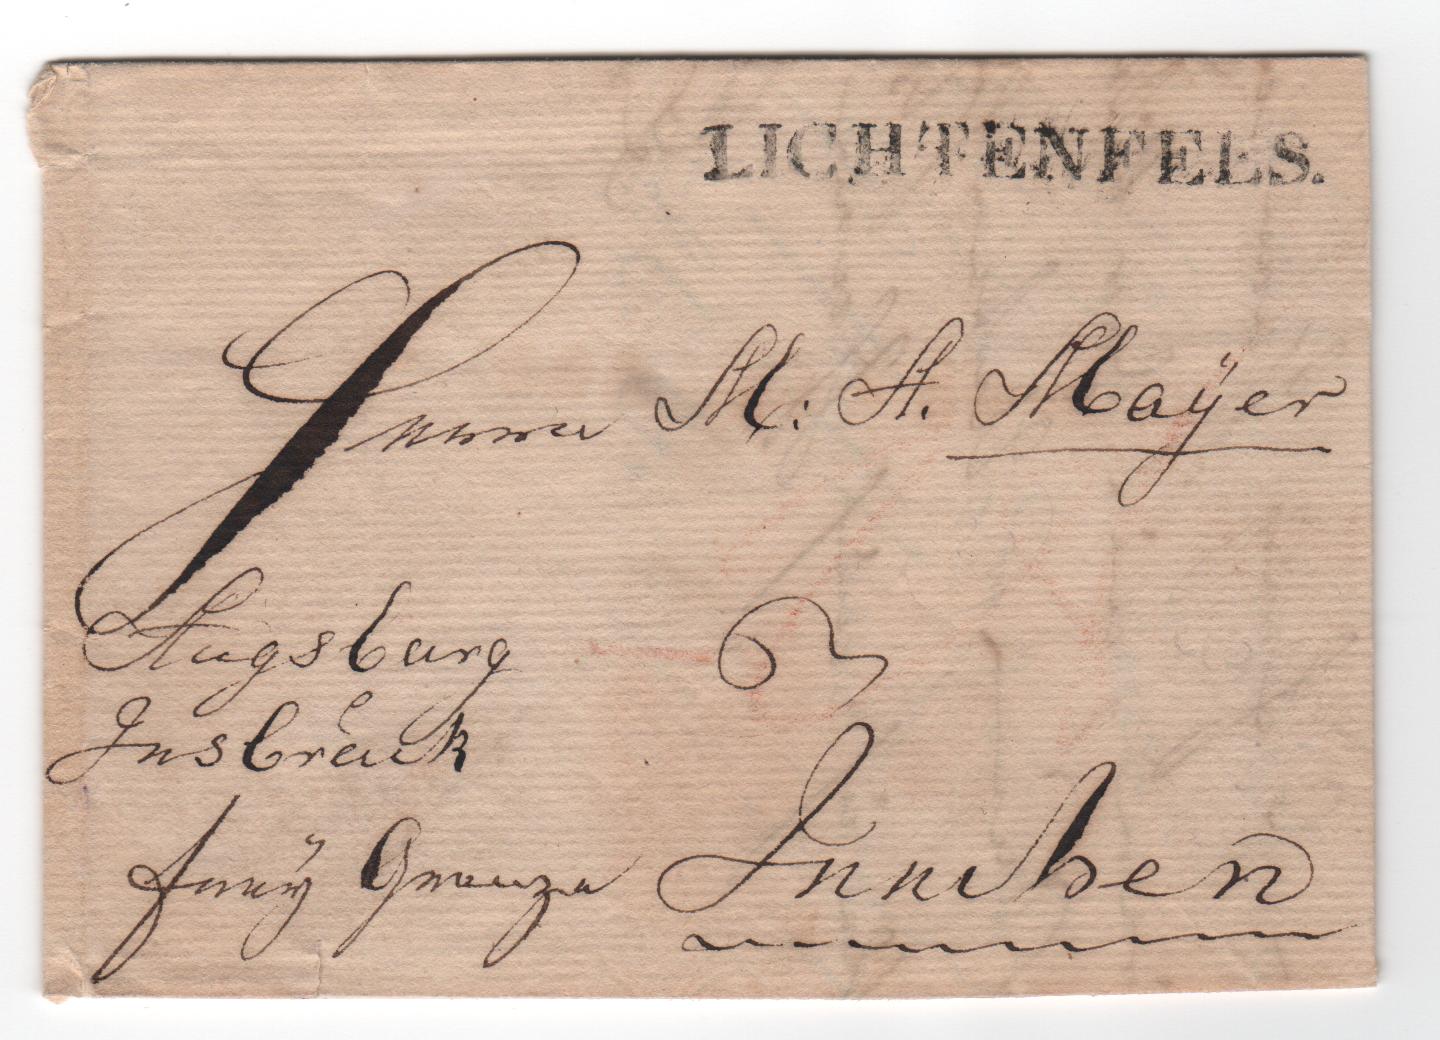 LICHTENFELS.
Herrn M: A. Mayër
Augsburg
Insbruck
frey Grenze
Innichen